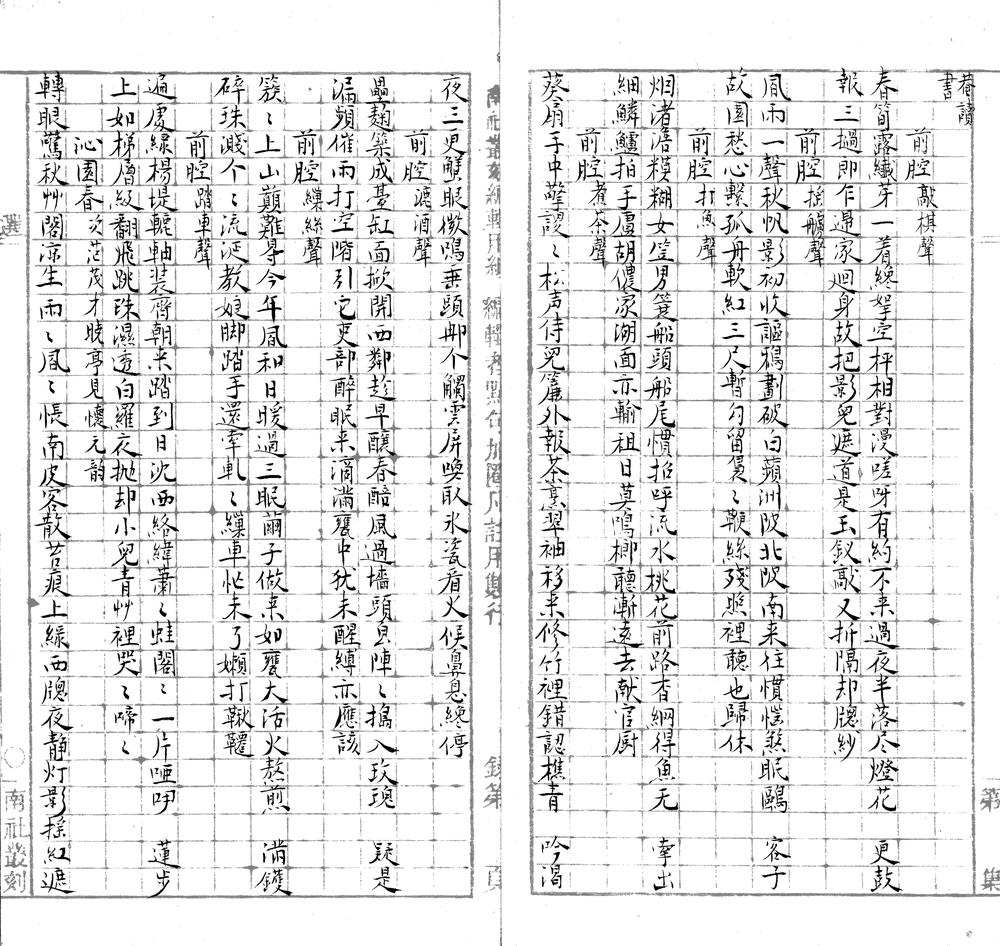 菴讀
書
前腔敲棋聲
春筍露纖芽一着纔拏空枰相對漫嗟呀有約不来過夜半落尽燈花　更鼓
報三撾即乍還家廻身故把影兒遮道是玉釵敲又折隔却牕紗
前腔搖艣聲
風雨一聲秋帆影初收謳鴉劃破白蘋洲陂北陂南来往慣慌煞眠鷗　客子
故園愁心繫孤舟軟紅三尺暫勾留裊〻鞭絲殘照裡聽也歸休
前腔打魚聲
烟渚澹糢糊女笠男簑船頭船尾慣招呼流水桃花前路杳網得魚无　牽出
細鱗鱸拍手盧胡儂家湖面亦輸租日莫鳴榔聽漸遠去献官厨
前腔煮茶聲
葵扇手中擎謖〻松声侍兒簾外報茶烹翠袖移来修竹裡錯認樵青　吟渴
夜三更蟹眼微鳴垂頭那个觸雲屏喚取氷瓷看火候鼻息纔停
前腔漉酒聲
壘麹築成臺缸面掀開西鄰趁早釀春醅風過墻頭息陣〻搗入玫瑰　疑是
漏頻催雨打空階引它吏部醉眠来滴滿甕中犹未醒縛亦應該
前腔繅絲聲
簇〻上山巔難尋今年風和日暖過三眠繭子做来如甕大活火熬煎　滿鑊
碎珠濺个〻流涎教娘脚踏手還牽軋〻繅車忙未了嬾打鞦韆
前腔踏車聲
遍處緑楊堤轆軸装齊朝来踏到日沈西絡緯蕭〻蛙閣〻一片啞咿　蓮步
上如梯層級翻飛跳珠濕透白羅衣抛却小兒青艸裡哭〻啼〻
沁園春次茫茂才曉亭見懷元韵
轉眼驚秋艸閣凉生雨〻風〻悵南皮客散苔痕上緑西牕夜静灯影摇紅遮
選
南社叢刻
第
集